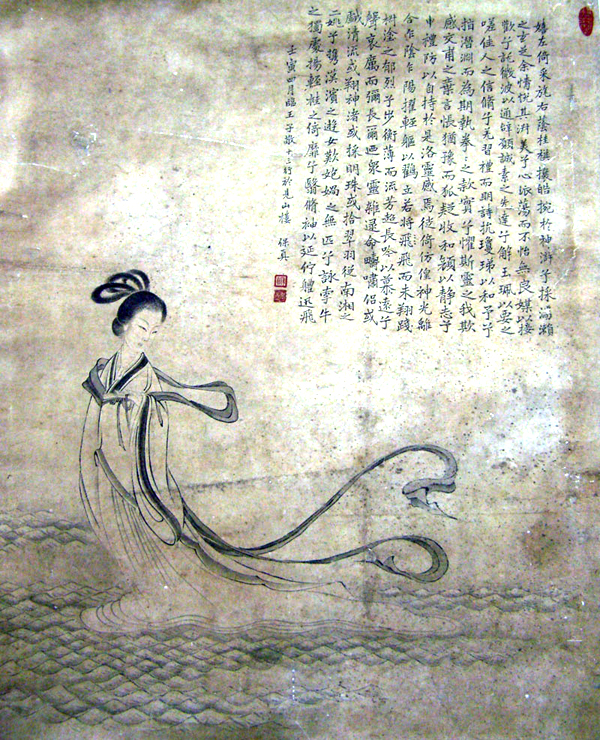 嬉左倚采旄右蔭桂旗攘皓捥於神滸兮採湍瀨
之玄芝余情悅其淑美兮心振蕩而不怡無良媒以接
歡兮託微波以通辭願誠素之先達兮解玉珮以要之
嗟佳人之信脩兮羌習禮而明詩抗瓊珶以和予兮
指潛淵而為期執拳拳之款實兮懼斯靈之我欺
感交甫之棄言悵猶豫而狐疑收和顏以静志兮
申禮防以自持於是洛靈感焉徙倚仿偟神光離
合乍陰乍陽擢輕軀以鶴立若將飛飛而未翔踐
椒塗之郁烈兮步蘅薄而流芳超長吟以慕遠兮
聲哀厲而彌長爾迺衆靈雜遝命疇嘯侶或
戲清流或翔神渚或採明珠或拾翠羽從南湘之
二姚兮攜漢濱之遊女歎炮媧之無匹兮詠牽牛
之獨處揚輕袿之倚靡兮翳脩袖以延佇體迅飛
壬寅四月臨王子敬十三行於見山樓 保真